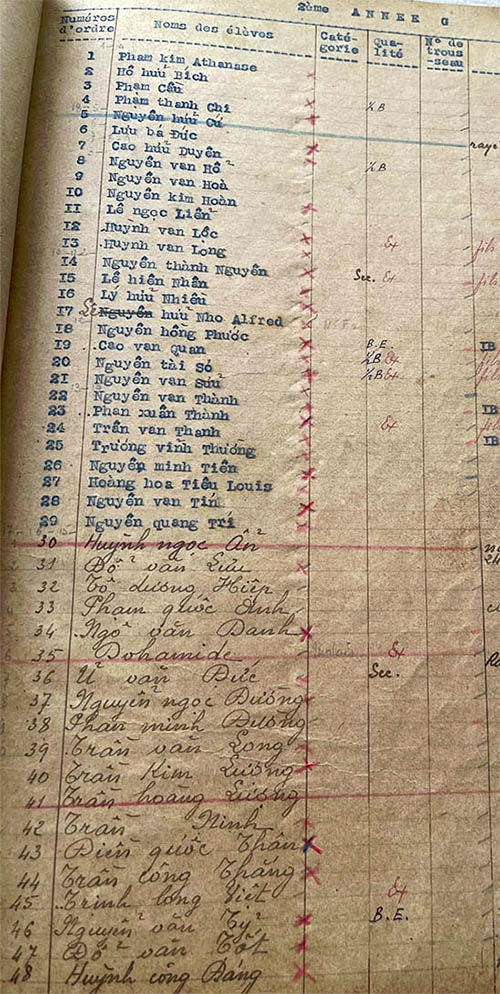 2ème ANNEE G
Numéros d'ordre Noms des élèves Caté-gorie Qua-lité N° de trous-seau
1 Pham kim Athanase
2 Hồ hữu Bích
3 Phạm Cầu
4 Phạm thanh Chi ½B
5 Nguyễn hữu Cứ
6 Lưu bá Đức
7 Cao hữu Duyên raye
8 Nguyễn van Hổ ½B
9 Nguyễn van Hoà
10 Nguyễn kim Hoàn
11 Lê ngọc Liễn
12 Huỳnh van Lộc
13 Huỳnh van Long Ex fils
14 Nguyễn thành Nguyên
15 Lê hiền Nhân Sec. Ex fils
16 Lý hữu Nhiêu
17 Lê Nguyễn hữu Nho Alfred
18 Nguyễn hồng Phước
19 Cao van Quan B.E. IB
20 Nguyễn tài Só ½B Ex
21 Nguyễn van Sửu ½B Ex
22 Nguyễn van Thành
23 Phan xuân Thành IB
24 Trần van Thanh Ex fils
25 Trương vinh Thưởng IB
26 Nguyễn minh Tiên
27 Hoàng hoa Tiêu Louis
28 Nguyễn van Tín
29 Nguyễn quang Trí
30 Huỳnh ngọc Ẩn
31 Đỗ văn Lưu
32 Tô dương Hiệp
33 Pham quốc Anh
34 Ngô văn Danh
35 Dohamide Malais Ex
36 Ư văn Đức Sec.
37 Nguyễn ngọc Đường
38 Phan minh Đương
39 Trần văn Long
40 Trần Kim Lương
41 Trần hoàng Lương
42 Trần Ninh
43 Điền quốc Thân
44 Trần công Thăng
45 Trinh long Việt Ex
46 Nguyễn văn Tý B.E.
47 Đỗ văn Tốt
48 Huỳnh công Đáng